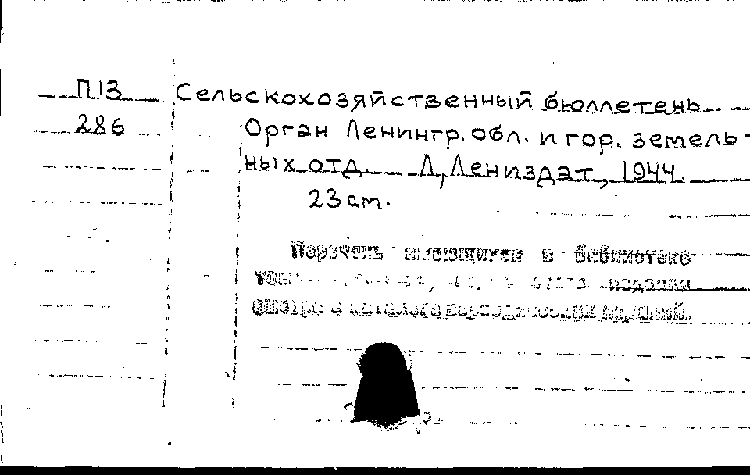 П13 Сельскохозяйственный бюллетень
286 Орган Ленингр. обл. и гор. земель-
ных отд. Л, Лениздат, 1944.
23 cm.
Перечень имеющихся в библиотеке
издания
смотри в каталоге периодических изданий.